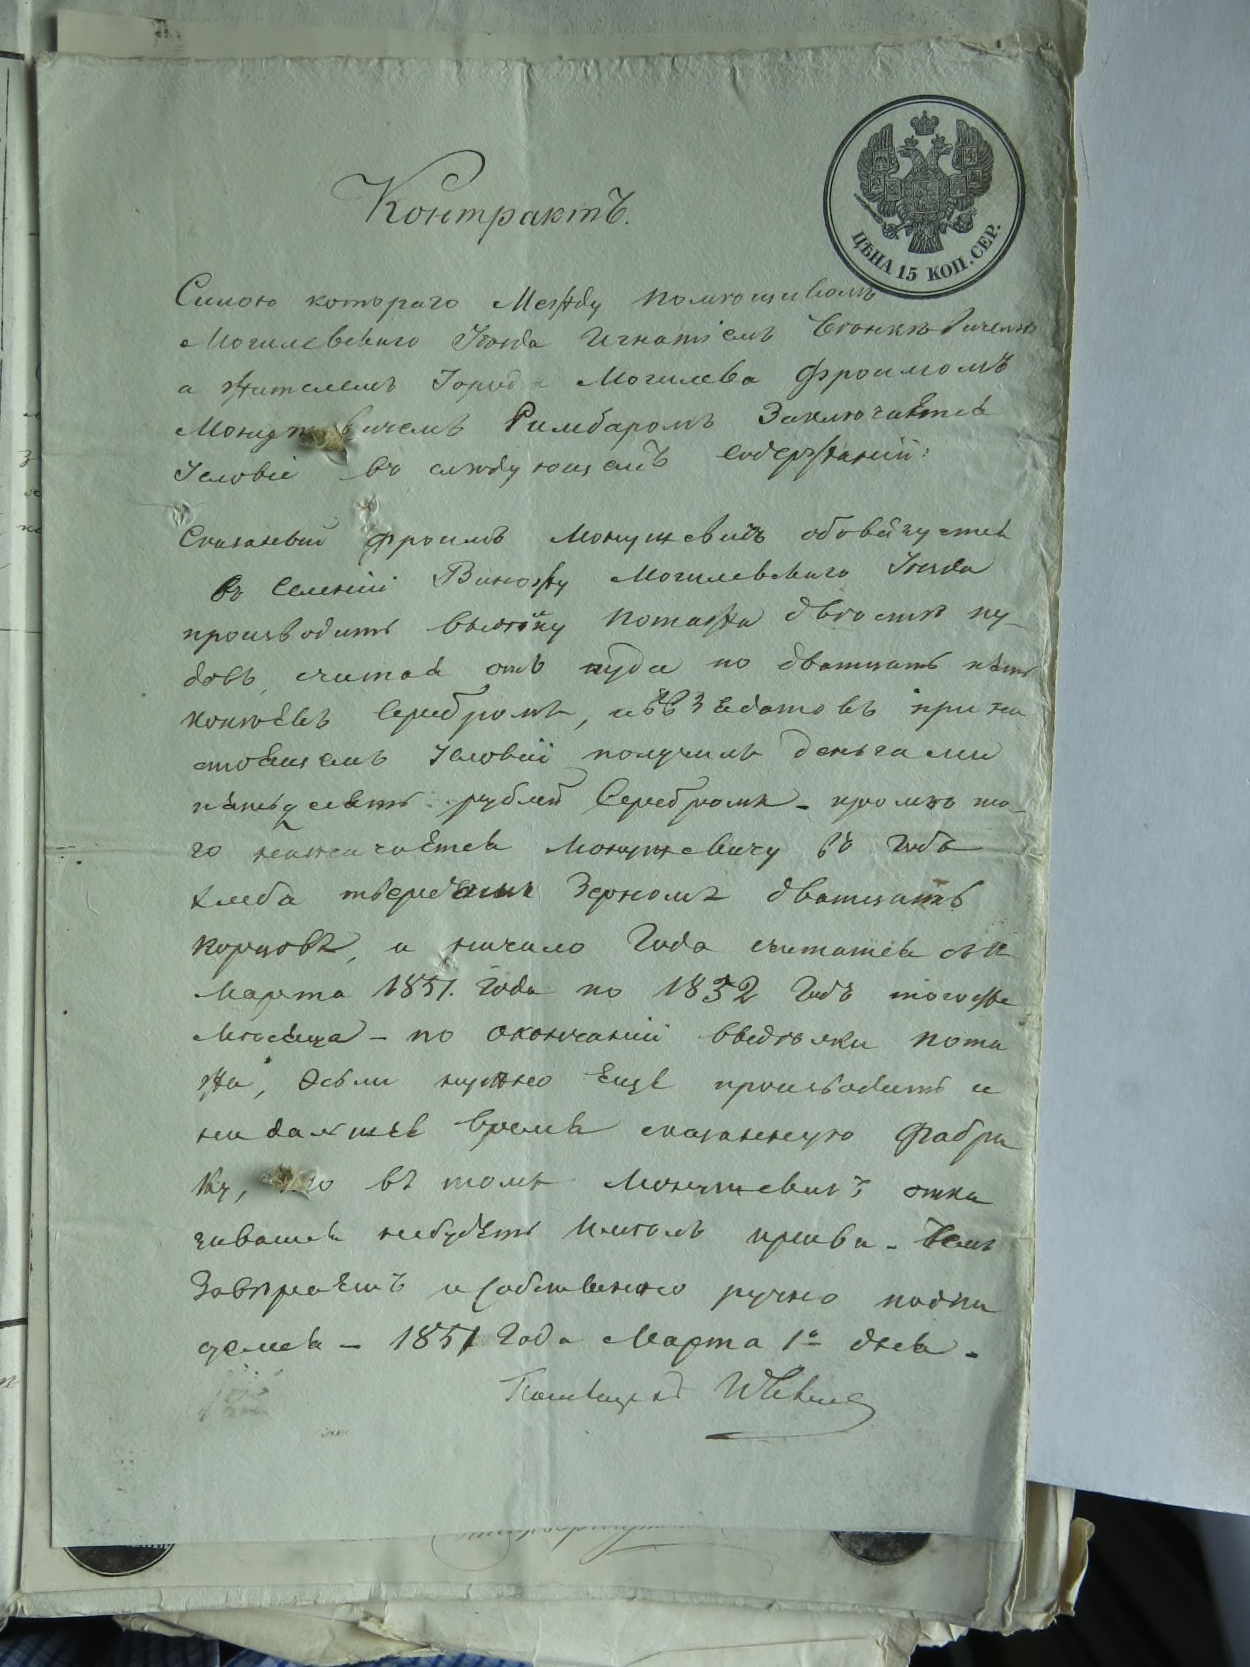 Контрактъ.
ЦѢНА 15 КОП. СЕР.
Силою котораго Между помѣщикомъ
Могилевскаго Уѣзда Игнатіемъ Станкѣвичемъ
а Жителемъ Города Могилева Фроимомъ
Римбаромъ Заключаѣтся
Условіе въ слѣдующемъ содержаніи:
Сказаный Фроимъ Монушевичъ обовязуется
въ Селеніи Виножу Могилевскаго Уѣзда
производить выдѣлку Поташа двѣстѣ пу-
довъ, считая отъ пуда по дватцать пять
копѣекъ Серебромъ, и въ Задатокъ при на
стоящемъ Условіи получилъ деньгами
пятьдесять рублей Серебромъ - кромѣ то-
го назначаѣтся Монушевичу въ Годъ
хлеба твердымъ Зерномъ дватцать
корцовъ, а начало Года считатся съ
Марта 1851. Года по 1852 Годъ тогожъ
Мѣсяца - по окончаніи выдѣлки пота
жа, Если нужно Ещѣ производить и
на далшеѣ время сказанную Фабри
ку, въ томъ Монушевичъ отка
зыватся небудѣтъ имѣть права.
Завѣряемъ и собственно ручно подпи
суемся - 1851 Года Марта 1º дня.